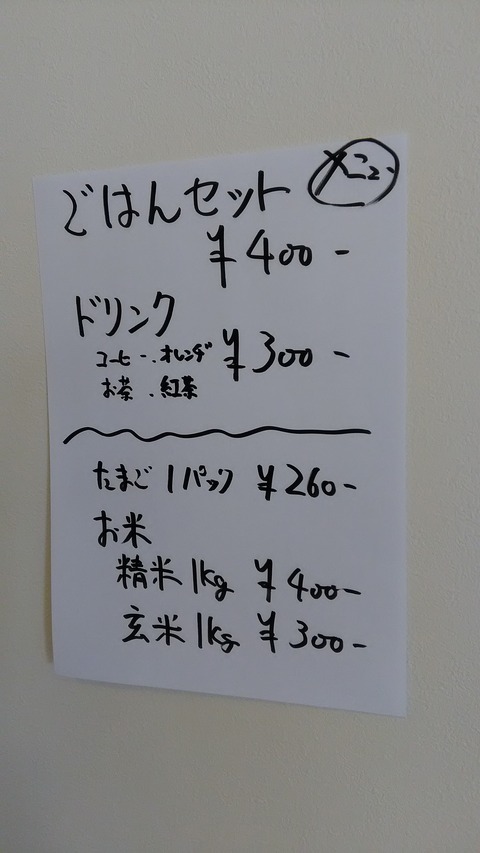 メニュー
ごはんセット
¥400-
ドリンク
コーヒー.オレンヂ ¥300-
お茶.紅茶
たまご 1パック ¥260-
お米
精米 1kg ¥400-
玄米 1kg ¥300-